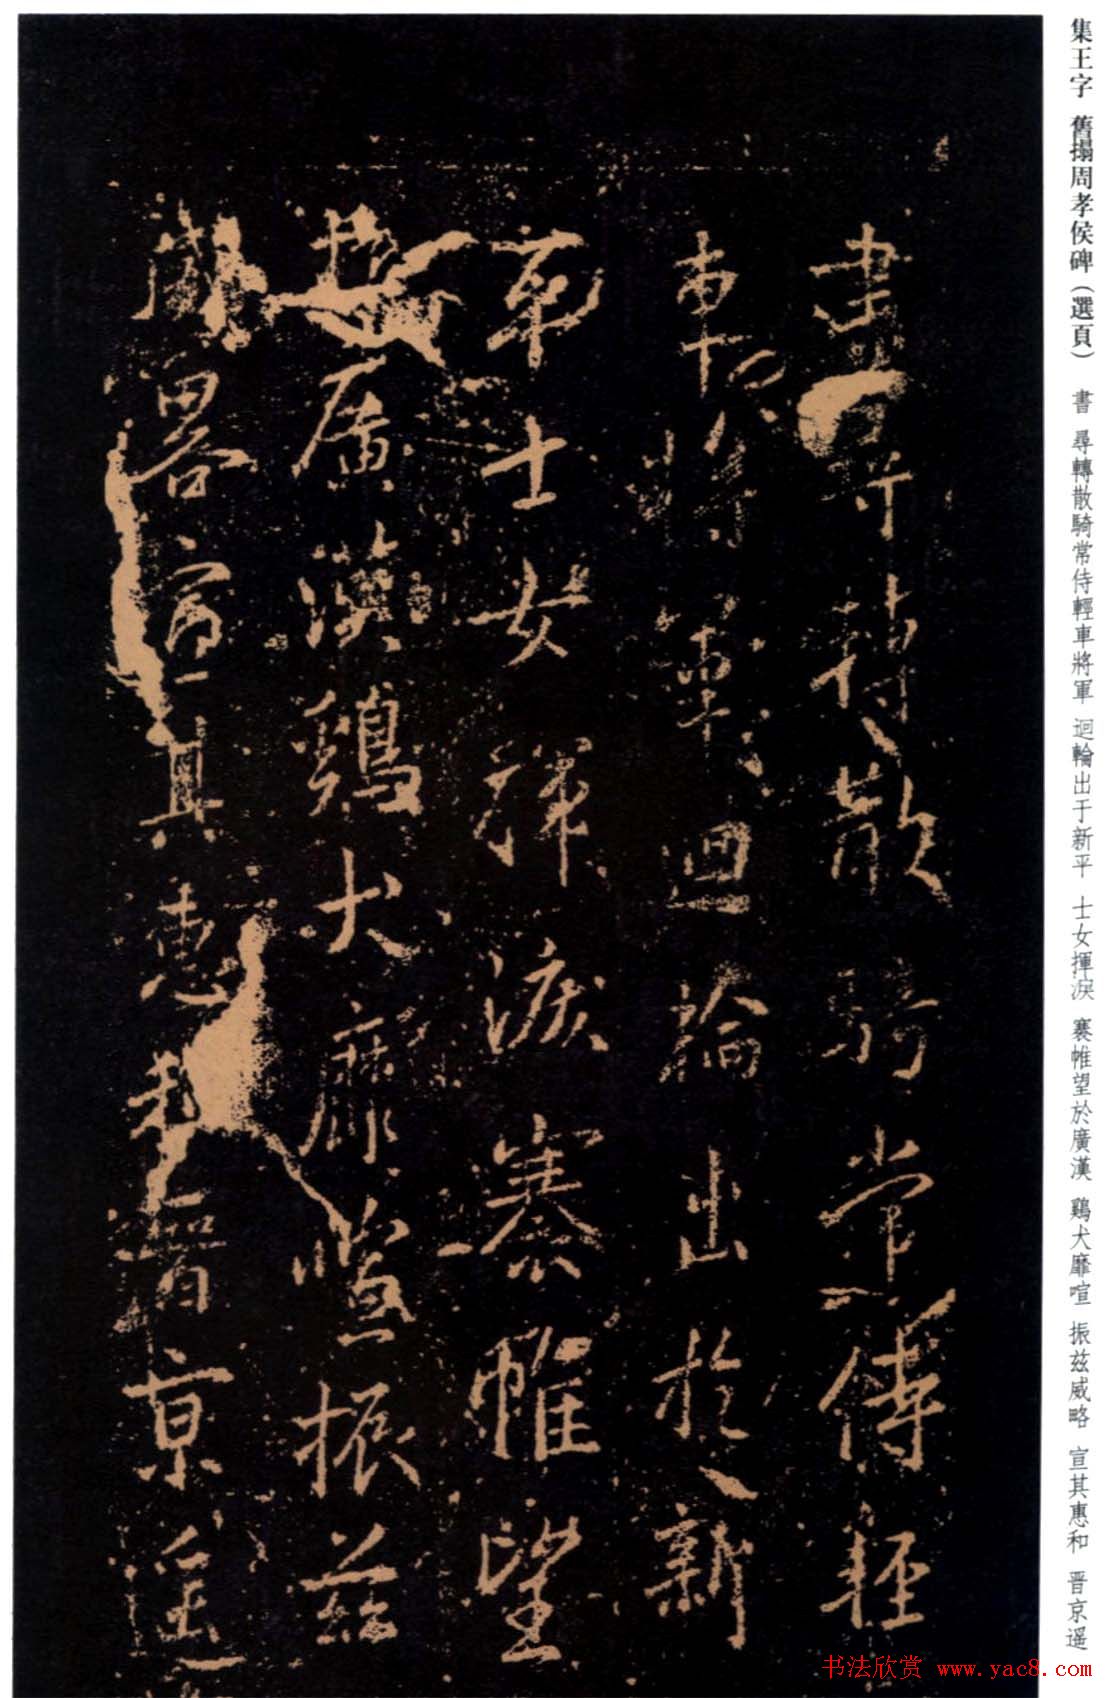 集王字 舊搨周孝侯碑（選頁） 書 尋轉散騎常侍輕車將軍 迴輪出于新平 士女揮淚 褰帷望於廣漢 鷄犬靡喧 振茲威略 宣其惠和 晋京遥
書尋轉散騎常侍輕
車將軍迴輪出於新
平士女揮淚褰帷望
於廣漢鷄犬靡喧振茲
威略宣其惠和晋京遥
书法欣赏 www.yac8.com